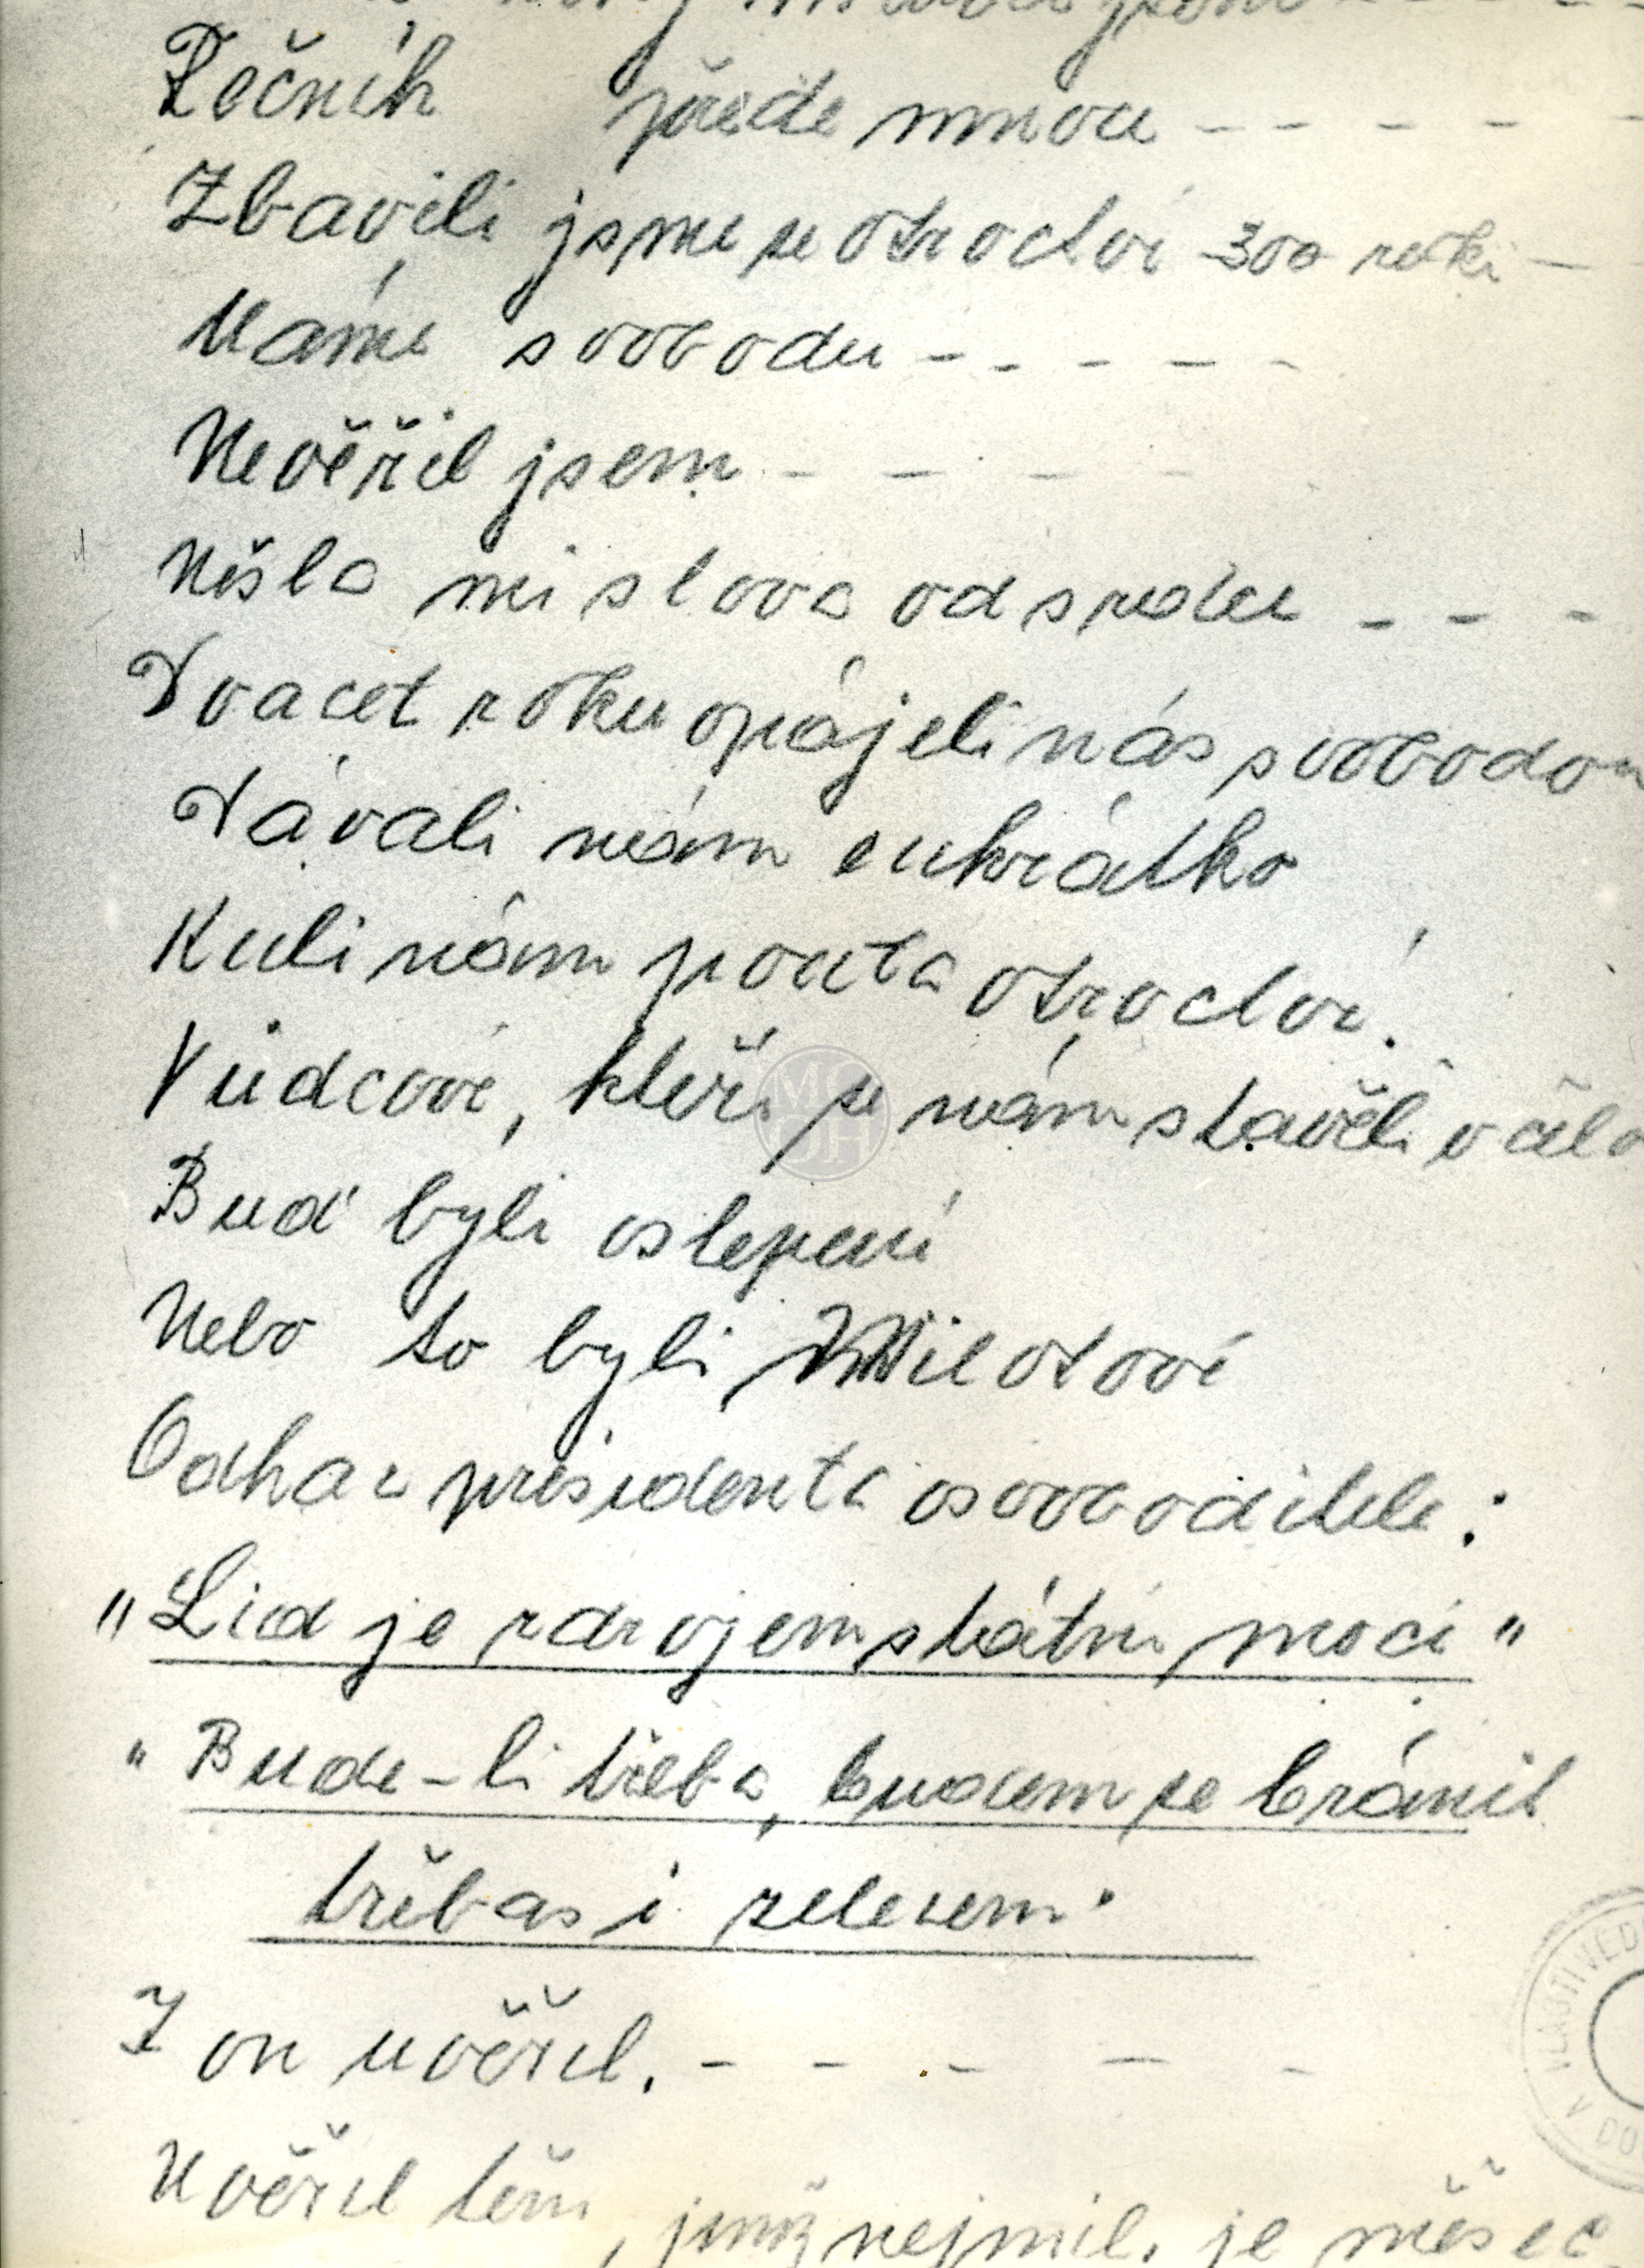 Řečník přede mnou - - - - -
Zbavili jsme se otroctví 300 roků -
Máme svobodu - - - - -
Nevěřil jsem - - - -
Nešla mi slova od srdce - - -
Dvacet roku opájeli nás svobodou
Dávali nám cukrátko
Kuli nám pouta otroctví.
Vůdcové, kteří se nám stavěli v čelo
Buď byli oslepení
Nebo to byli Milotové
Odkaz presidenta osvoboditele:
"Lid je zdrojem státní moci"
"Bude-li třeba, budem se bránit
třebas i železem.
I on uvěřil. - - - - -
Uvěřil těm, jimž nejmil. je měšec
VLASTIVĚD
V DO